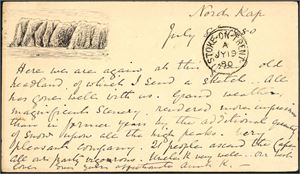 North Kap
July
STOKE-ON-TRENT
A
JY 19
90
Here we are again at this old
headland, of which I send a sketch. All
has gone well with us. Grand weather,
magnificent Scenery rendered more impressive
than in former years by the additional quantity
of Snow upon all the high peaks. Very
pleasant company. 21 people ascend the Cape
All our party vigorous. Uncle K very well